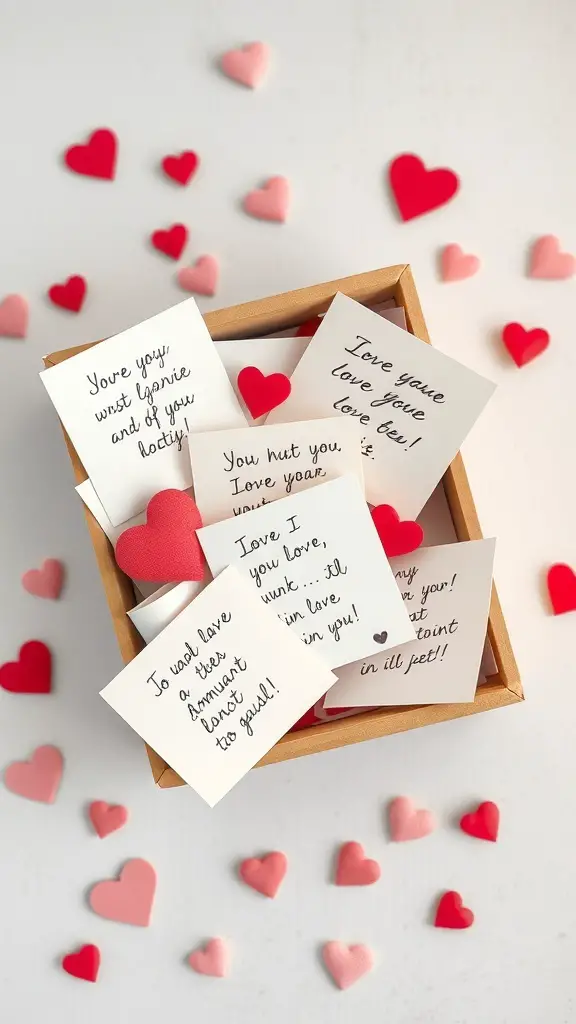 Yove yoy,
wrst lgonie
and of you
loctiy!
Iove yaue
love yove
love bee!
You hut you,
Iove yoar
Iove I
you love,
unk ... til
in love
in you!
my
yar!
at
toint
in ill jet!!
To uapl lave
a thes
Anmuart
lanot
tro gausl!